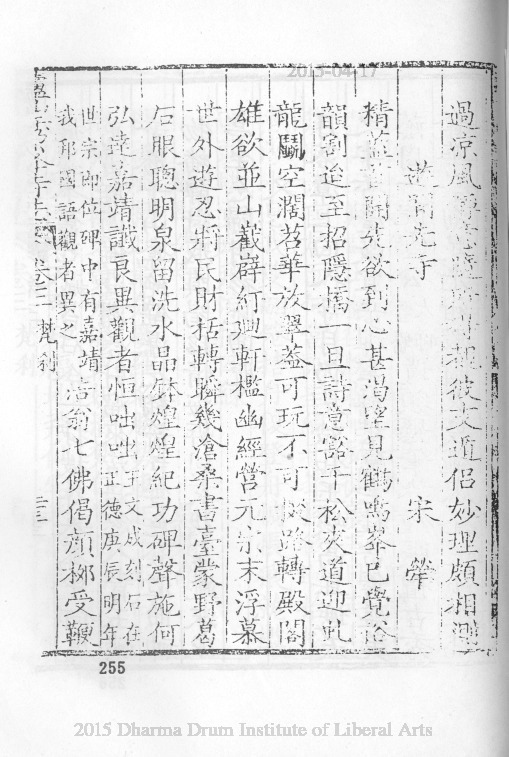 過涼風 彼文道侶妙理頗相測
遊開先寺 宋犖
精藍 開先欲到心甚渴望見鶴鳴峯已覺俗
韻割迨至招隱橋一旦詩意豁千松夾道迎虬
龍鬭空濶苕華放翠蓋可玩不可掇路轉殿閣
雄欲並山巀嶭紆廻軒檻幽經營元宗末浮慕
世外遊忍將民財括轉瞬幾滄桑書臺蒙野葛
石眼聰明泉留洗水晶鉢煌煌紀功碑聲施何
弘達嘉靖讖良異觀者恒咄咄王文成刻石在正德庚辰明年
世宗即位碑中有嘉靖我邦國語觀者異之浩翁七佛偈顏柳受鞭
卷三 梵刹
255
2015-04-17
2015 Dharma Drum Institute of Liberal Arts